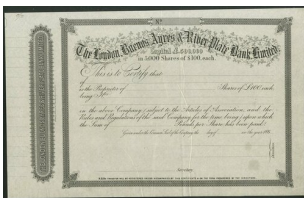 No
The London, Buenos Ayres & River Plate Bank, Limited.
Capital £500,000
in 5000 Shares of £100 each.
This is to Certify that
of
is the Proprietor of Shares of £100 each
being Nos
in the above Company subject to the Articles of Association, and the
Rules and Regulations of the said Company for the time being, upon which
the Sum of Pounds per Share has been paid.
Given under the Common Seal of the Company, this day of in the year 186